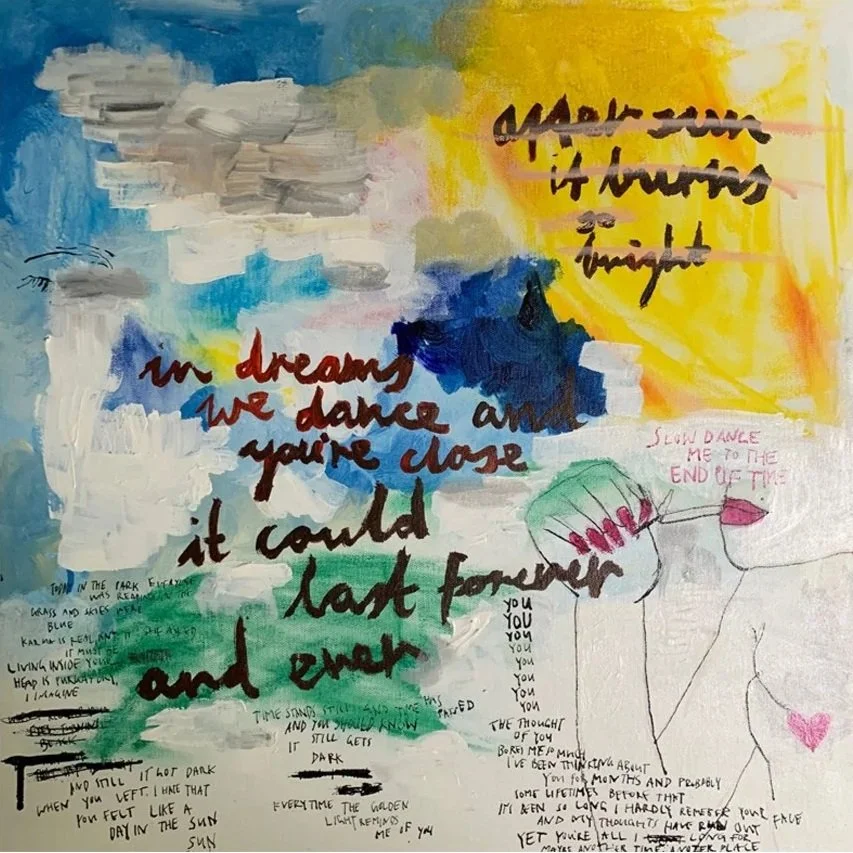 after sun
it burns
so
bright
in dreams
we dance and
you're close
it could
last forever
and ever
SLOW DANCE
ME TO THE
END OF TIME
TODAY IN THE PARK
WAS READING IN THE
GRASS AND SKIES WERE
BLUE
KARMA IS REAL
IT MUST BE
LIVING INSIDE YOUR
HEAD IS PURGATORY,
I IMAGINE
BLACK
AND STILL IT GOT DARK
WHEN YOU LEFT. I HATE THAT
YOU FELT LIKE A
DAY IN THE SUN
SUN
TIME STANDS STILL AND TIME HAS PASSED
AND YOU SHOULD KNOW
IT STILL GETS
DARK
EVERYTIME THE GOLDEN
LIGHT REMINDS
ME OF YOU
YOU
YOU
YOU
YOU
YOU
YOU
YOU
YOU
THE THOUGHT
OF YOU
BORES ME SO MUCH
I'VE BEEN THINKING ABOUT
YOU FOR MONTHS AND PROBABLY
SOME LIFETIMES BEFORE THAT
IT'S BEEN SO LONG I HARDLY REMEBER YOUR FACE
AND MY THOUGHTS HAVE RUN OUT
YET YOU'RE ALL I LONG FOR
MAYBE ANOTHER TIME, ANOTHER PLACE